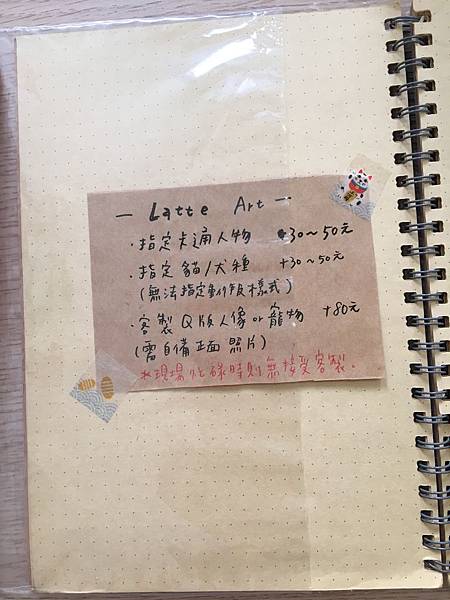 — Latte Art —
· 指定卡通人物 +30~50元
· 指定貓/犬種 +30~50元
(無法指定動作及樣式)
· 客製Q版人像or寵物 +80元
(需自備正面照片)
*現場忙碌時則無接受客製.